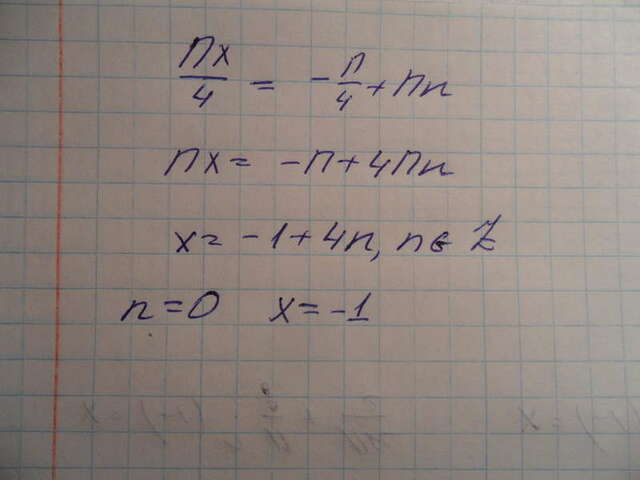 πx/4 = -π/4 + πn
πx = -π + 4πn
x = -1 + 4n, n ∈ Z
n = 0 x = -1